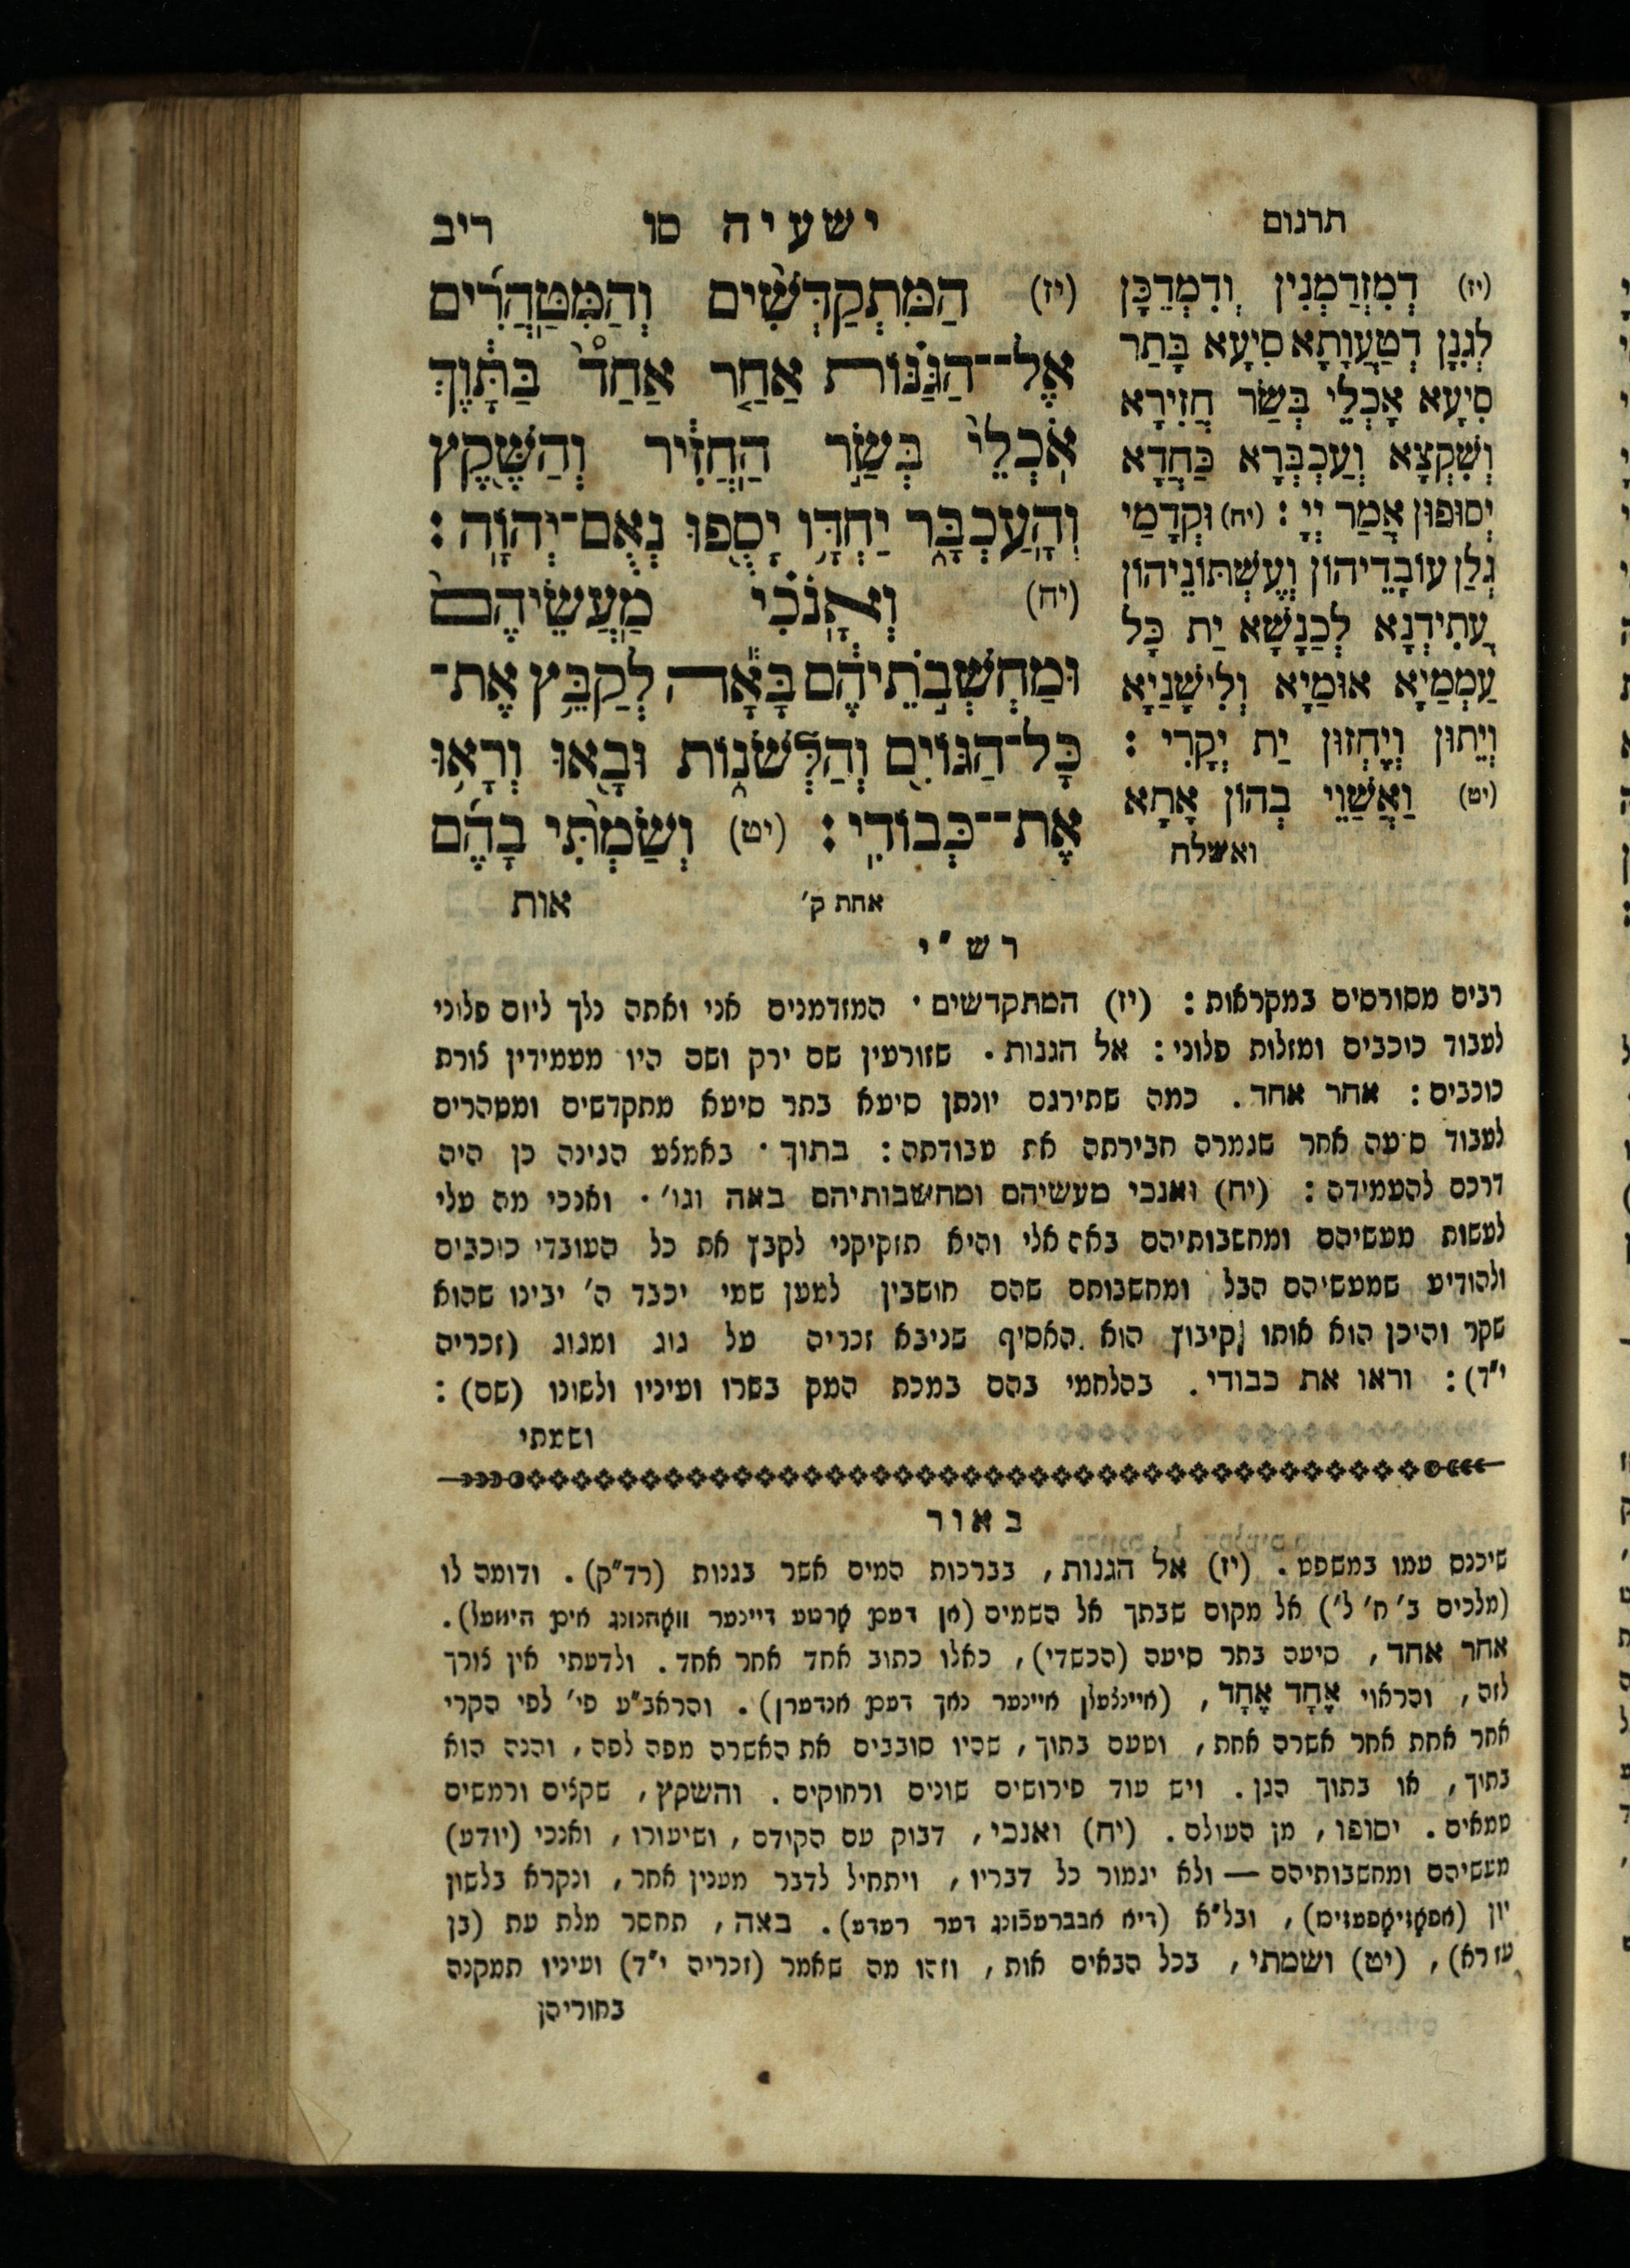 תרגום
ישעיה סו ריב
(יז) דְמִזְדַמְנִין וְדִמְדַכָּן
לְגִנָן דְטַעֲוָתָא סִיעָא בָּתַר
סִיעָא אָכְלֵי בְּשַׂר חֲזִירָא
וְשִׁקְצָא וְעַכְבְּרָא כַּחֲדָא
יְסוּפוּן אֲמַר יְיָ : (יח) וּקְדָמַי
גְלַן עוֹבָדֵיהוֹן וְעֶשְׁתּוֹנֵיהוֹן
עֲתִידְנָא לְכַנָשָׁא יַת כָּל
עַמְמַיָא אוּמַיָא וְלִישָׁנַיָא
וְיֵתוּן וְיֶחֱזוּן יַת יְקָרִי :
(יט) וַאֲשַׁוֵי בְהוֹן אָתָא
ואשלח
(יז) הַמִּתְקַדְּשִׁ֨ים וְהַמִּֽטַּהֲרִ֜ים
אֶל־־הַגַּנּ֗וֹת אַחַ֤ר אַחַד֙ בַּתָּ֔וֶךְ
אֹֽכְלֵי֙ בְּשַׂ֣ר הַֽחֲזִ֔יר וְהַשֶּׁ֖קֶץ
וְהָֽעַכְבָּ֑ר יַחְדָּ֥ו יָסֻ֖פוּ נְאֻם־יְהוָֹֽה :
(יח) וְאָֽנֹכִ֗י מַֽעֲשֵׂיהֶם֙
וּמַחְשְׁבֹ֣תֵיהֶ֔ם בָּאָ֕ה לְקַבֵּ֥ץ אֶת־
כָּל־הַגּוֹיִ֖ם וְהַלְּשֹׁנ֑וֹת וּבָ֖אוּ וְרָא֥וּ
אֶת־־כְּבוֹדִֽי : (יט) וְשַׂמְתִּ֨י בָהֶ֜ם
אחת ק׳ אות
רש״י
רבים מסורסים במקראות : (יז) המתקדשים · המזדמנים אני ואתה נלך ליום פלוני
לעבוד כוכבים ומזלות פלוני : אל הגנות . שזורעין שם ירק ושם היו מעמידין צורת
כוכבים : אחר אחד . כמה שתירגם יונתן סיעא בתר סיעא מתקדשים ומטהרים
לעבוד סיעה אחר שגמרה חבירתה את עבודתה : בתוך · באמצע הגינה כן היה
דרכם להעמידה : (יח) ואנכי מעשיהם ומחשבותיהם באה וגו׳ · ואנכי מה עלי
לעשות מעשיהם ומחשבותיהם באה אלי והיא תזקיקני לקבץ את כל העובדי כוכבים
ולהודיע שמעשיהם הבל ומחשבותם שהם חושבין למען שמי יכבד ה׳ יבינו שהוא
שקר והיכן הוא אותו קיבוץ הוא האסיף שניבא זכריה על גוג ומגוג (זכריה
י״ד) : וראו את כבודי . בהלחמי בהם במכת המק בשרו ועיניו ולשונו (שם) :
ושמתי
באור
שיכנס עמו במשפט . (יז) אל הגנות , בברכות המים אשר בגנות (רד״ק) . ודומה לו
(מלכים ב׳ ח׳ ל׳) אל מקום שבתך אל השמים (אן דעם אָרטע דיינער וואָהנונג אים היממעל) .
אחר אחד , סיעה בתר סיעה (הכשדי) , כאלו כתוב אחד אחר אחד . ולדעתי אין צורך
לזה , והראוי אֶחָד אֶחָד , (איינצעלן איינער נאך דעם אנדערן) . והראב״ע פי׳ לפי הקרי
אחר אחת אחר אשרה אחת , וטעם בתוך , שהיו סובבים את האשרה מפה לפה , והנה הוא
בתיך , או בתוך הגן . ויש עוד פירושים שונים ורחוקים . והשקץ , שקצים ורמשים
טמאים . יסופו , מן העולם . (יח) ואנכי , דבוק עם הקודם , ושיעורו , ואנכי (יודע)
מעשיהם ומחשבותיהם — ולא יגמור כל דבריו , ויתחיל לדבר מענין אחר , ונקרא בלשון
יון (אפאָזיאָפעזיס) , ובל״א (דיא אבברעכֿונג דער רעדע) . באה , תחסר מלת עת (בן
עזרא) , (יט) ושמתי , בכל הבאים אות , וזהו מה שאמר (זכריה י״ד) ועיניו תמקנה
בחוריהן